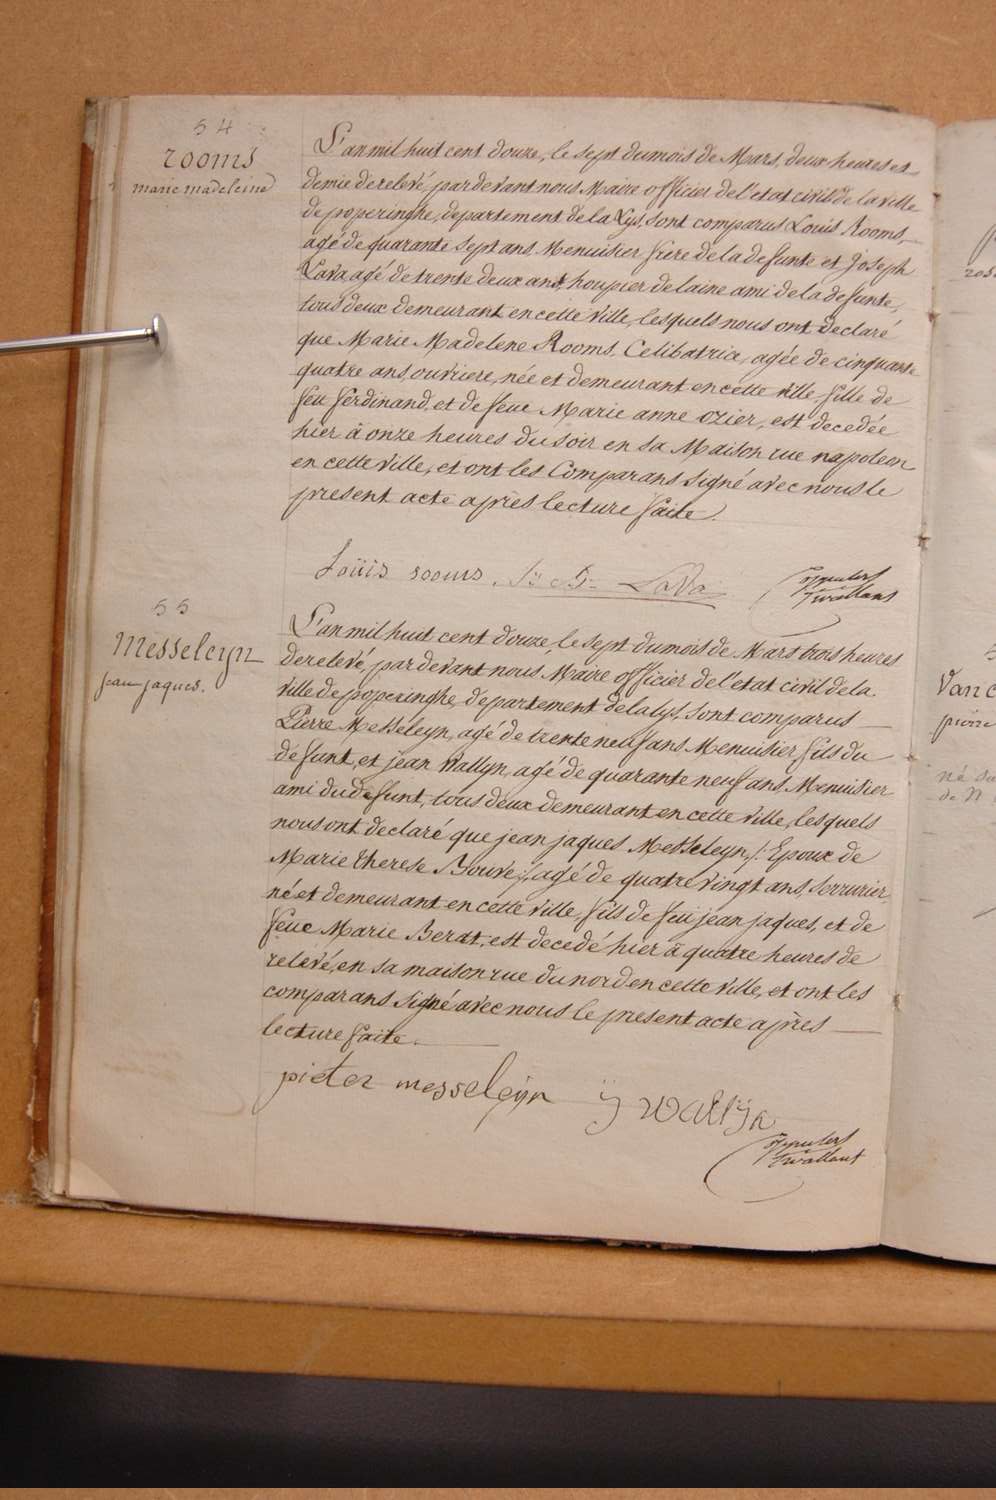 54
rooms
marie madeleine
L'an mil huit cent douze, le sept du mois de Mars, deux heures et
demie de relevé, par devant nous Maire officier de l'etat civil de la ville
de poperinghe, departement de la Lys, sont comparus Louis Rooms,
agé de quarante sept ans, Menuisier frere de la defunte et Joseph
Lava, agé de trente deux ans houpier de laine ami de la defunte,
tous deux demeurant en cette ville, lesquels nous ont declaré
que Marie Madelene Rooms, Celibatrice, agée de cinquante
quatre ans, ouvriere, née et demeurant en cette ville, fille de
feu Ferdinand, et de feue Marie anne ozier, est decedée
hier à onze heures du soir en sa Maison rue napoleon
en cette ville, et ont les Comparans signé avec nous le
present acte après lecture faite.
Louis rooms Lava
55
Messeleyn
jean jaques.
L'an mil huit cent douze, le sept du mois de Mars trois heures
de relevé, par devant nous Maire officier de l'etat civil de la
ville de poperinghe, departement de la lys, sont comparus
Pierre Messeleyn, agé de trente neuf ans Menuisier, fils du
defunt, et jean Wallyn, agé de quarante neuf ans, Menuisier
ami du defunt, tous deux demeurant en cette ville, lesquels
nous ont declaré que jean jaques Messeleyn, /: Epoux de
Marie therese Bouve :/, agé de quatre vingt ans, serrurier,
né et demeurant en cette ville, fils de feu jean jaques, et de
feue Marie Berat, est decedé hier à quatre heures de
relevé, en sa maison rue du nord en cette ville, et ont les
comparans signé avec nous le present acte après
lecture faite.
pieter messeleyn j wallijn
Van c
pierre
né du
de N